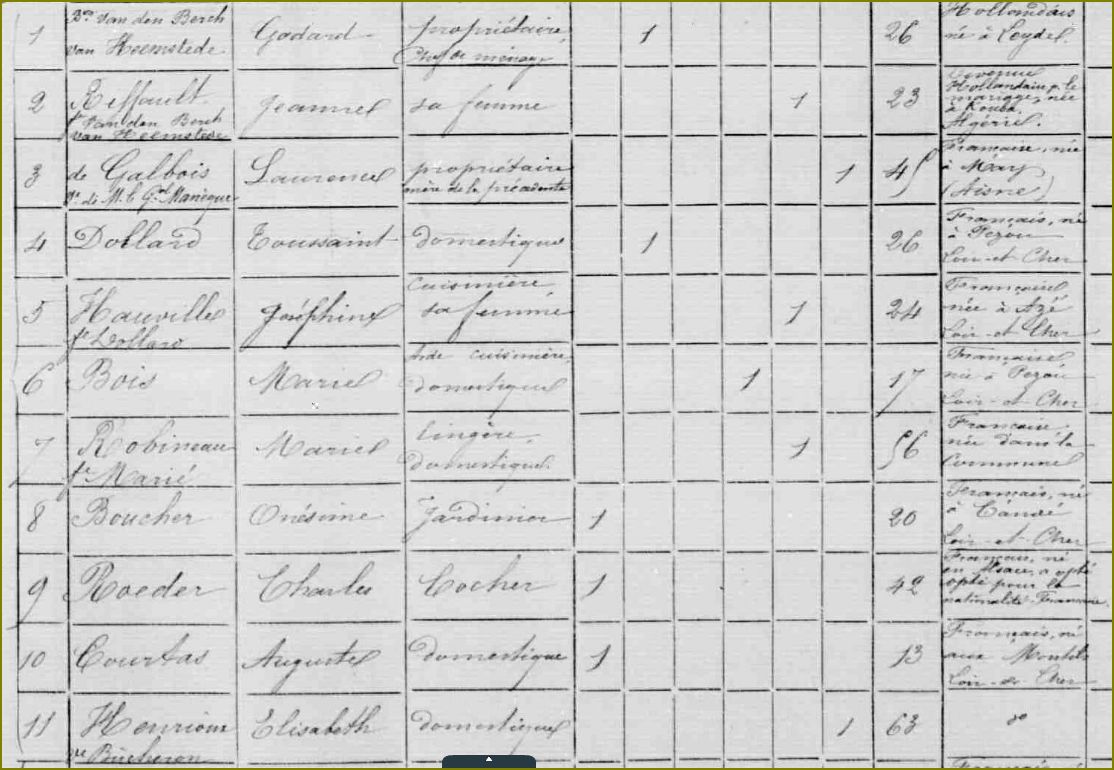 1 Bon Van den Berch van Heemstede Godard propriétaire, Chef de ménage 1 26 Hollandais né à Leydel.
2 Reffault fe Van den Berch van Heemstede Jeanne sa femme 1 23 devenue Hollandaise p. le mariage, née à Kouba Algérie.
3 de Galbois Ve de M. le Gal Manèque Laurence propriétaire mère de la précédente 1 45 Française, née à Mary (Aisne)
4 Dollard Toussaint domestique 1 26 Français, né à Pezou Loir-et-Cher
5 Hauville fe Dollard Joséphine cuisinière, sa femme 1 24 Française née à Azé Loir-et-Cher
6 Bois Marie Aide cuisinière, domestique 1 17 Française née à Pezou Loir-et-Cher
7 Robineau fe Marié Marie lingère, domestique. 1 56 Française née dans la commune
8 Boucher Onésime Jardinier 1 20 Français, né à Candé Loir-et-Cher
9 Roeder Charles Cocher 1 42 Français, né en Alsace, a opté opté pour la nationalité Française
10 Courtas Auguste domestique 1 13 Français, né aux Montils Loir-et-Cher
11 Henrion ve Bucheron Elisabeth domestique 1 63 do